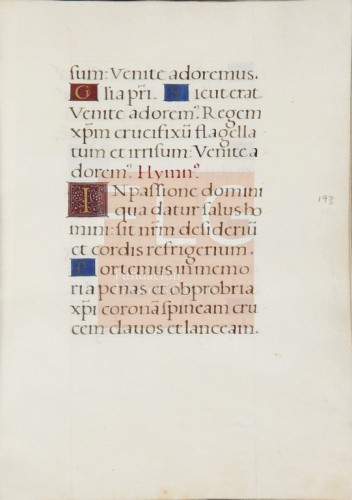 sum: Venite adoremus.
Glia pr̄i. Sicut erat
Venite adorem⁹. Regem
xp̄m crucifixū flagella
tum et irrisum: Venite a
dorem⁹. Hymn⁹.
IN passione domini
qua datur salus ho
mini: sit nr̄m desideriū
et cordis refrigerium.
Portemus in memo
ria penas et obprobria
xp̄i coronā spineam cru
cem clavos et lanceam.
193